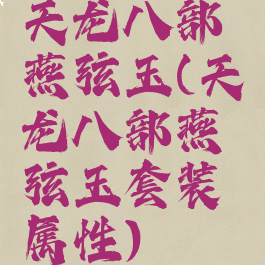 天龙八部
燕弦玉(天
龙八部燕
弦玉套装
属性)